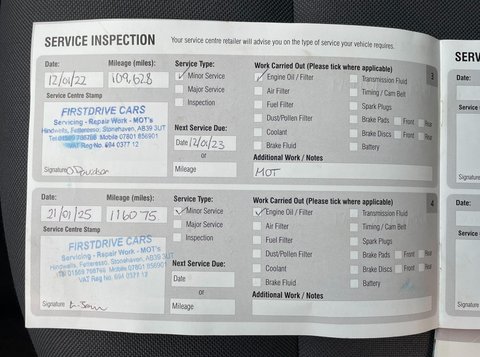 SERVICE INSPECTION Your service centre retailer will advise you on the type of service your vehicle requires.
Date: Mileage (miles): Service Type: Work Carried Out (Please tick where applicable) 3
12/01/22 109,628 Minor Service Engine Oil / Filter Transmission Fluid
Major Service Air Filter Timing / Cam Belt
Service Centre Stamp Inspection Fuel Filter Spark Plugs
FIRSTDRIVE CARS Dust/Pollen Filter Brake Pads Front Rear
Servicing - Repair Work - MOT's Next Service Due: Coolant Brake Discs Front Rear
Hindwells, Fetteresso, Stonehaven, AB39 3UT Date 12/01/23 Brake Fluid Battery
Tel 01569 766798 Mobile 07801 856901 or Additional Work / Notes
VAT Reg No. 694 0377 12 Mileage MOT
Signature
Date: Mileage (miles): Service Type: Work Carried Out (Please tick where applicable) 4
21/01/25 116075 Minor Service Engine Oil / Filter Transmission Fluid
Major Service Air Filter Timing / Cam Belt
Service Centre Stamp Inspection Fuel Filter Spark Plugs
FIRSTDRIVE CARS Dust/Pollen Filter Brake Pads Front Rear
Servicing - Repair Work - MOT's Next Service Due: Coolant Brake Discs Front Rear
Hindwells, Fetteresso, Stonehaven, AB39 3UT Date Brake Fluid Battery
Tel 01569 766798 Mobile 07801 856901 or Additional Work / Notes
VAT Reg No. 694 0377 12 Mileage
Signature
SERV
Date:
Service
Signature
Date:
Service
Signature